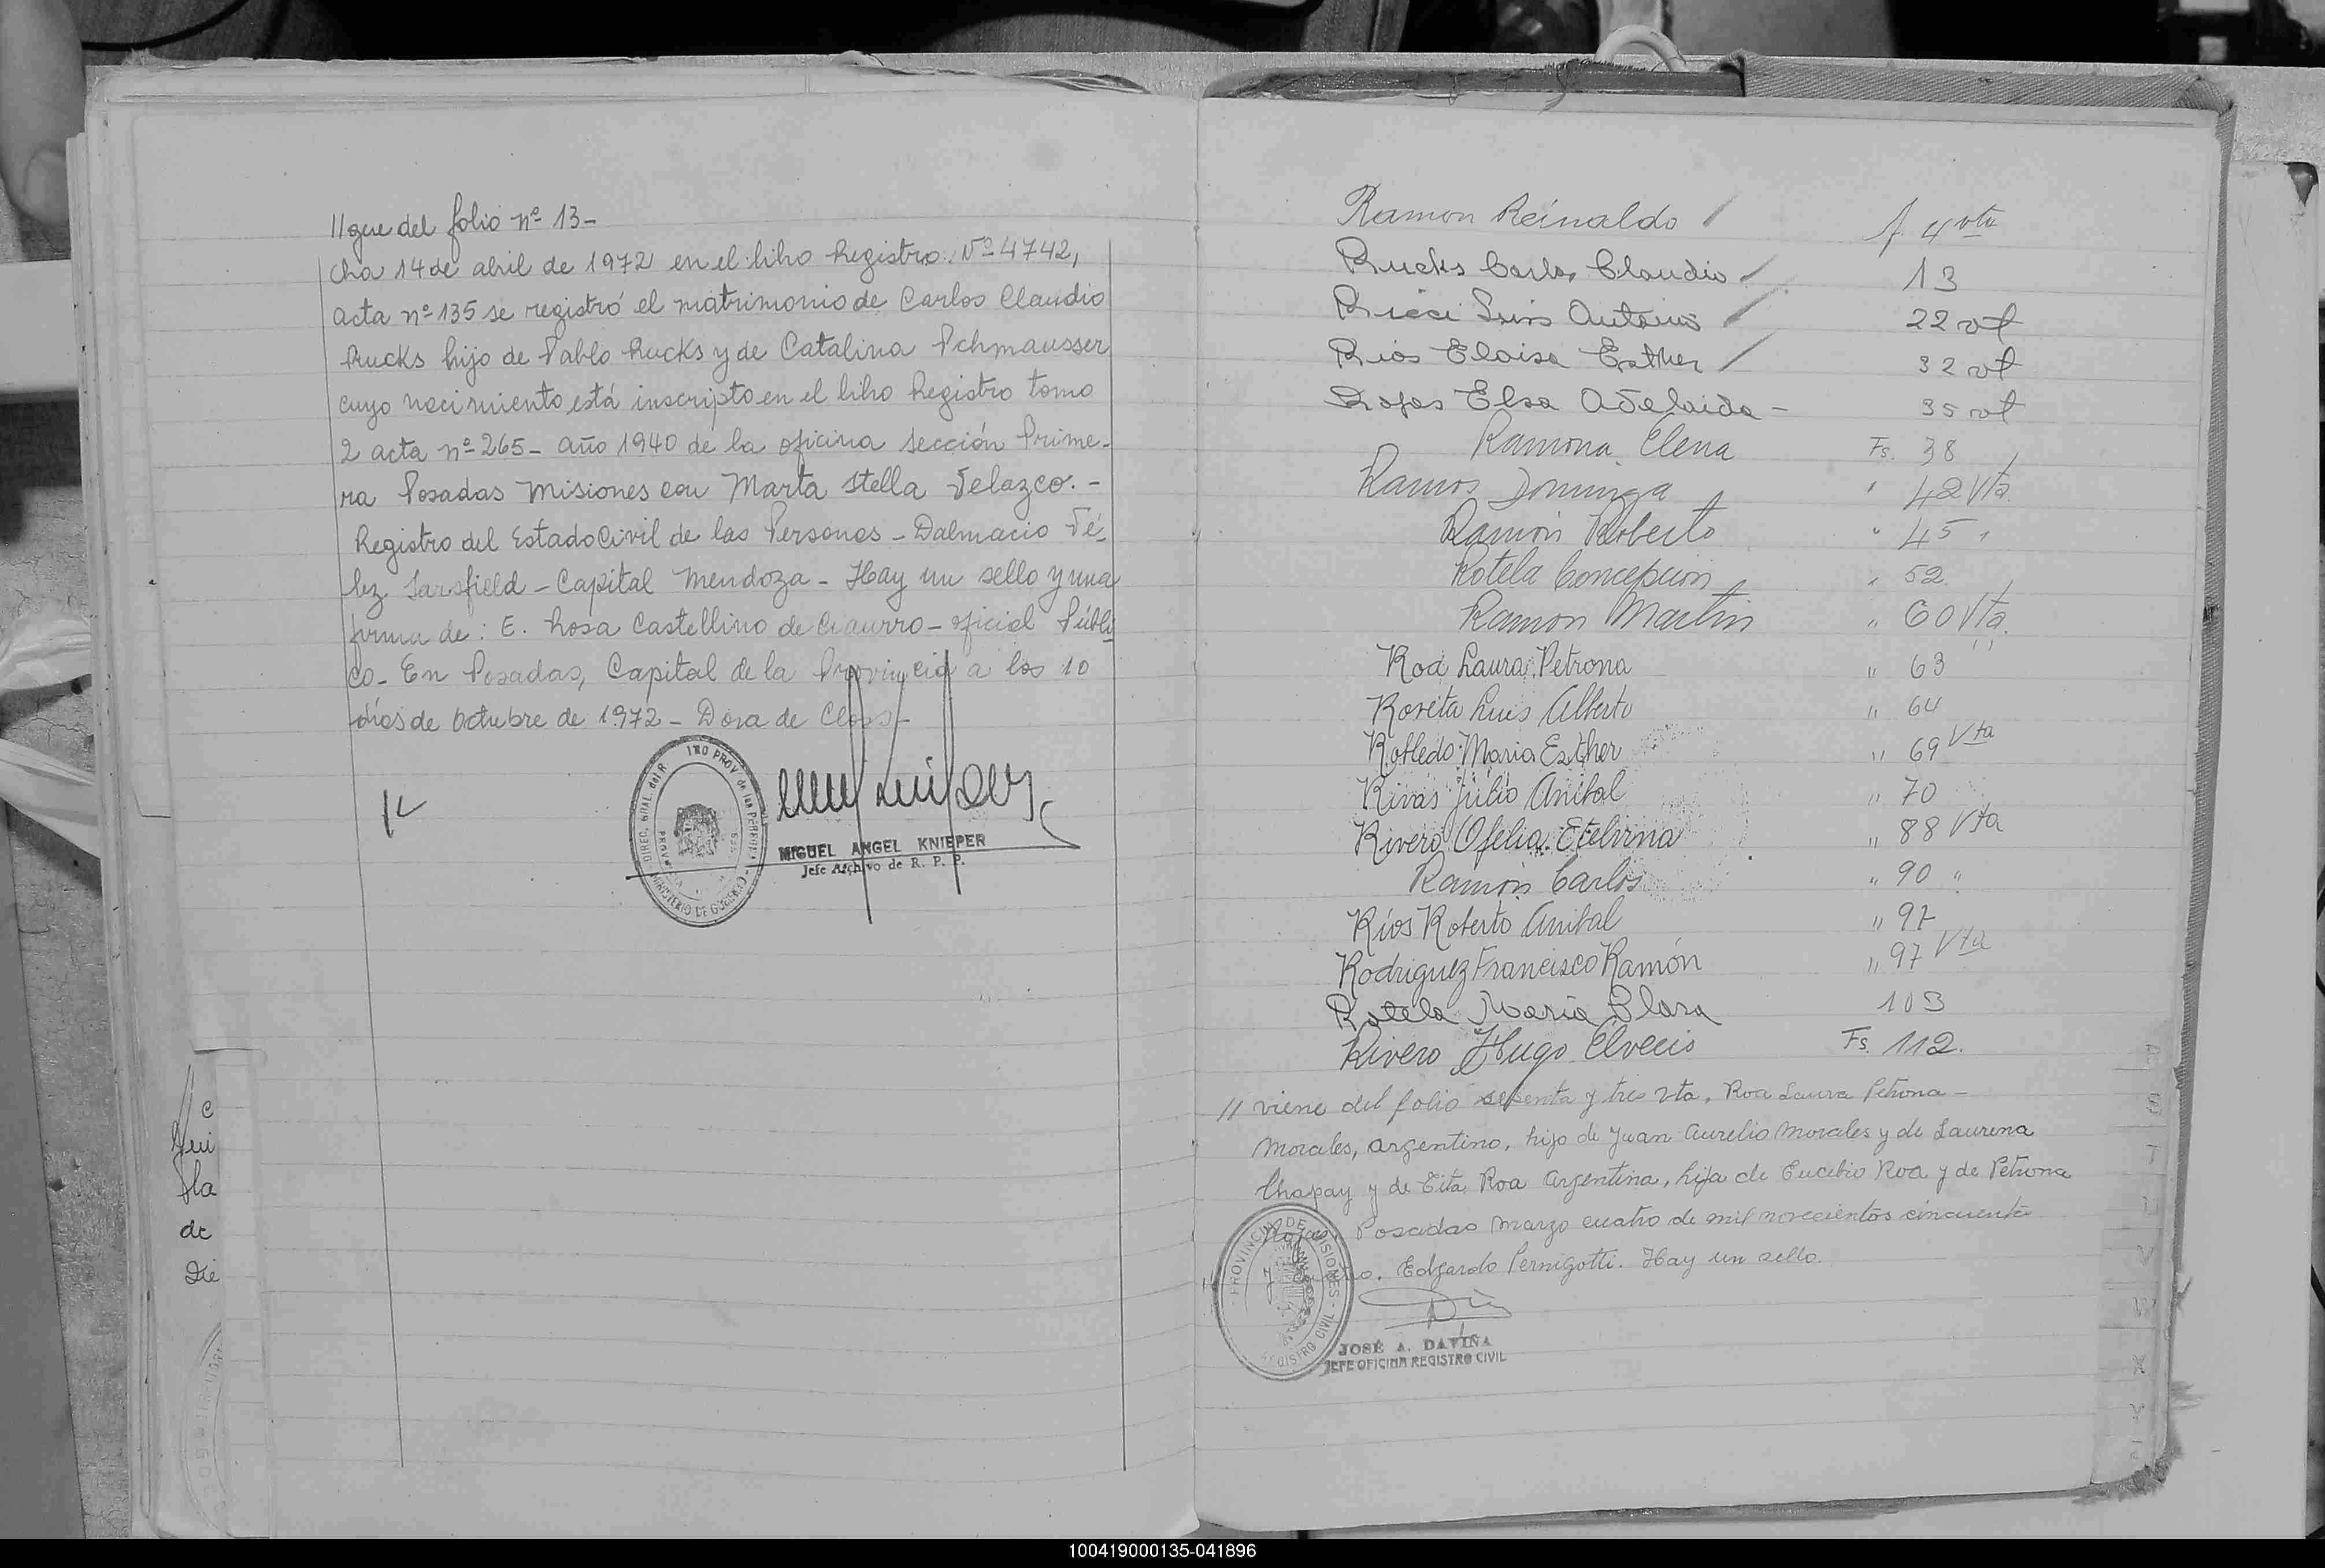 //gue del folio nº 13-
cha 14 de abril de 1972 en el libro Registro: Nº 4742,
acta nº 135 se registró el matrimonio de Carlos Claudio
Rucks hijo de Pablo Rucks y de Catalina Schmausser
cuyo nacimiento está inscripto en el libro Registro tomo
2 acta nº 265- año 1940 de la oficina sección Prime-
ra Posadas Misiones con Marta Stella Velazco.-
Registro del Estado Civil de las Personas - Dalmacio Vé-
lez Sarsfield - Capital Mendoza - Hay un sello y una
firma de: E. Rosa Castellino de Ciaurro - oficial Públi
co - En Posadas, Capital de la Provincia a los 10
días de Octubre de 1972 - Dora de Closs -
MIGUEL ANGEL KNIEPER
Jefe Archivo de R. P. P.
DIREC. GRAL. del R
PROV de las PERSONAS
MINISTERIO DE GOBIERNO
c
de
Die
Ramon Reinaldo / f. 4 vta
Rucks Carlos Claudio / 13
Ricci Luis Antonio / 22 vt
Rios Eloisa Esther / 32 vt
Rojas Elsa Adelaida - 35 vt
Ramona Elena Fs. 38
Ramos Dominga " 42 Vta.
Ramón Roberto " 45 "
Rotela Concepción " 52
Ramon Martin " 60 Vta.
Roa Laura Petrona " 63 "
Luis Alberto " 64
Robledo Maria Esther " 69 Vta
Rivas Julio Anibal " 70
Rivero Ofelia Etelvina " 88 Vta
Ramón Carlos " 90 "
Ríos Roberto Anibal " 97
Rodriguez Francisco Ramón " 97 Vta
Rotela Maria Clara 103
Rivero Hugo Elvecio Fs. 112.
// viene del folio sesenta y tres vta, Roa Laura Petrona -
Morales, argentino, hijo de Juan Aurelio Morales y de Laurena
Chapay y de Tita Roa argentina, hija de Eucebio Roa y de Petrona
Rojas. Posadas marzo cuatro de mil novecientos cincuenta
y cuatro. Edgardo Pernigotti. Hay un sello.
PROVINCIA DE MISIONES - REGISTRO CIVIL
JOSÉ A. DAVIÑA
JEFE OFICINA REGISTRO CIVIL
100419000135-041896